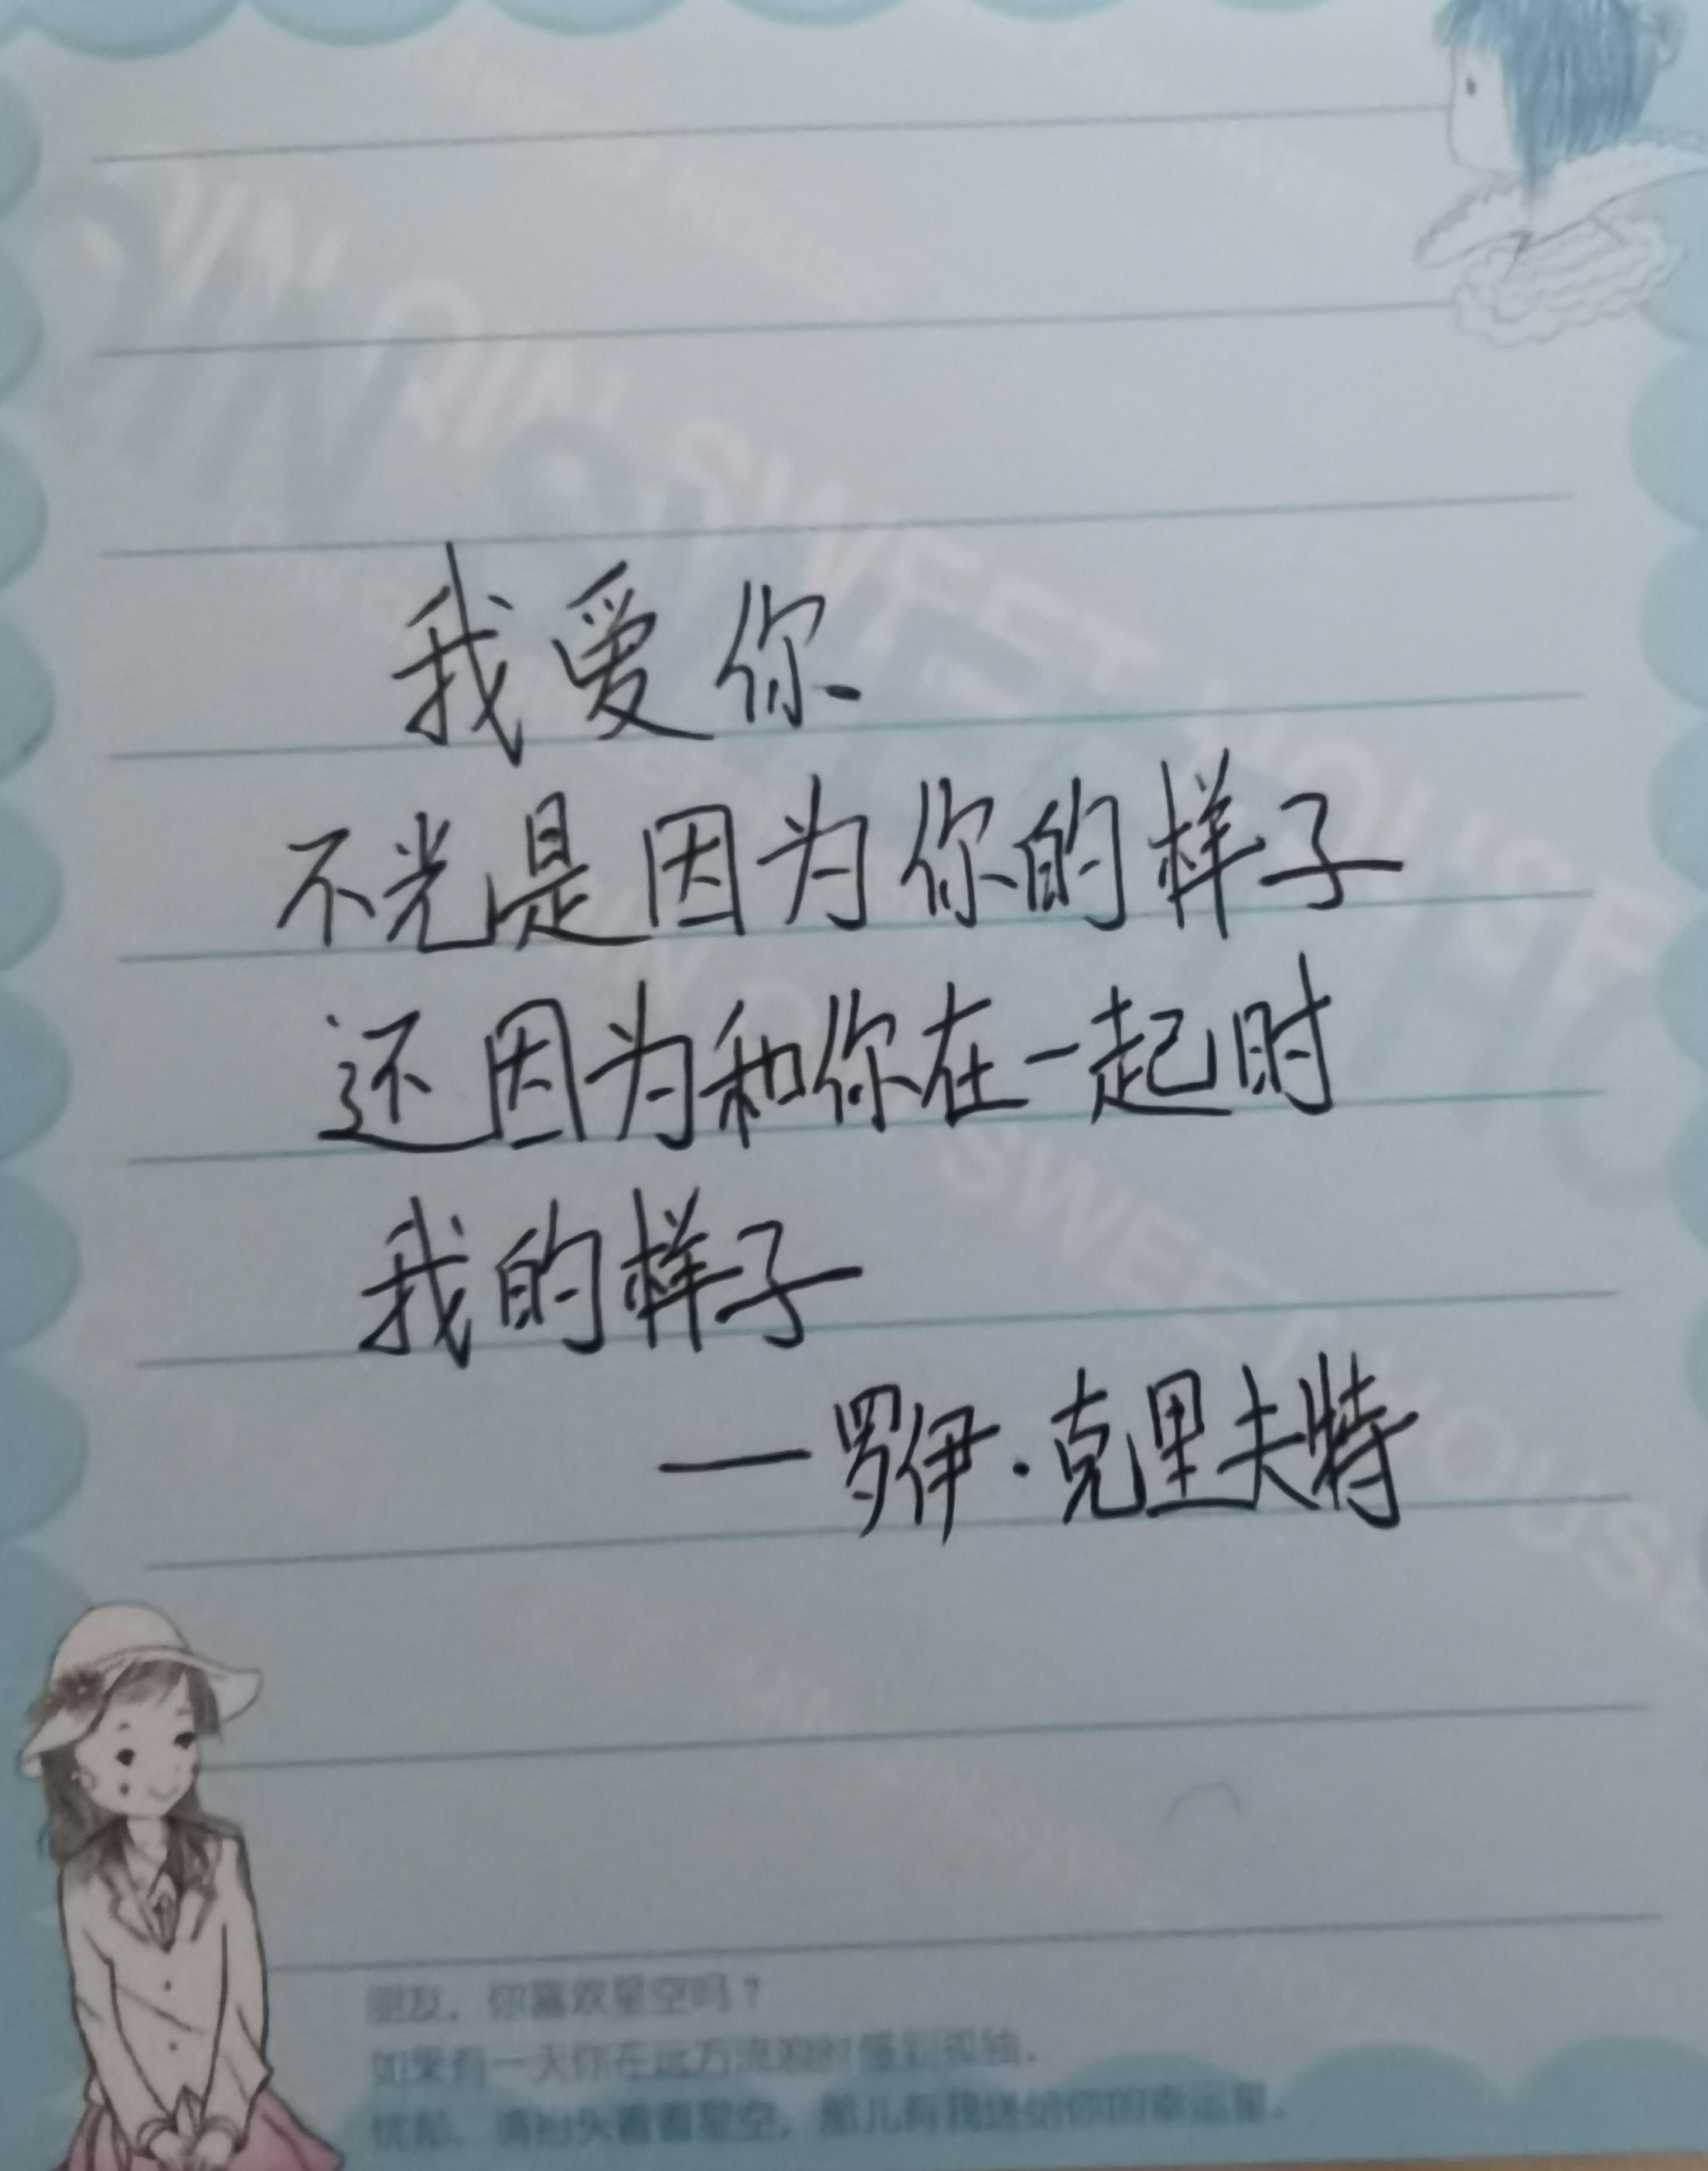 我爱你
不光是因为你的样子
还因为和你在一起时
我的样子
—罗伊·克里夫特
朋友，你喜欢星空吗？
如果有一天你在远方流浪时感到孤独、
忧郁，请抬头看看星空，那儿有我送给你的幸运星。
SWEET HOUSE
SWEET HOUSE